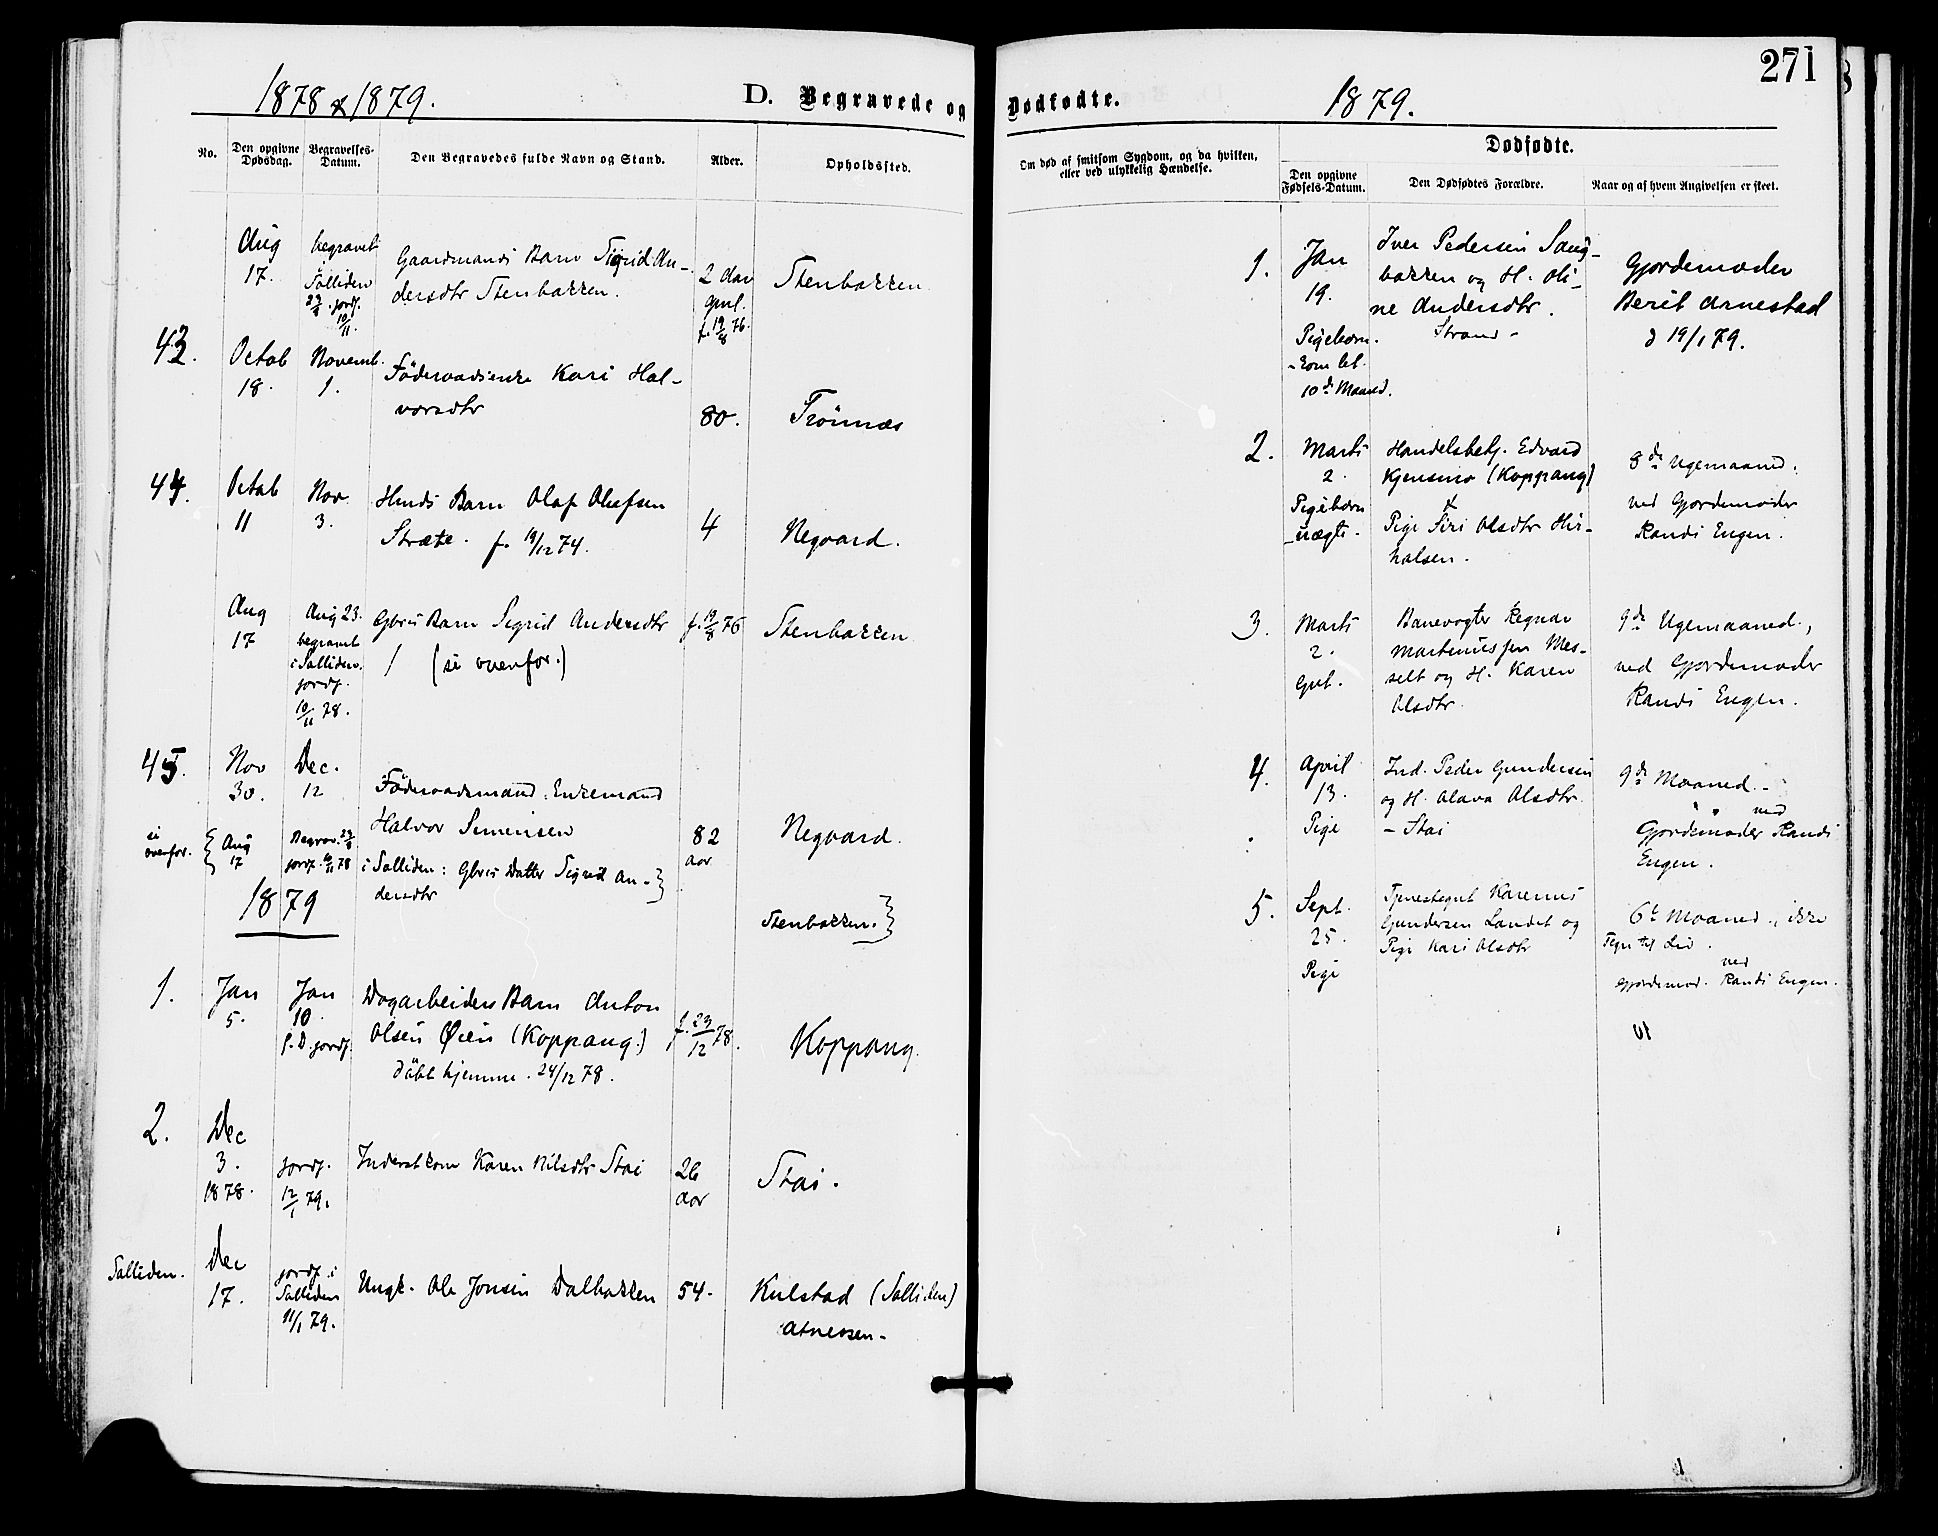 271
1878 & 1879.
D. Begravede og Dødfødte.
1879.
No.
Den opgivne Dødsdag.
Begravelses-Datum.
Den Begravedes fulde Navn og Stand.
Alder.
Opholdssted.
Om død af smitsom Sygdom, og da hvilken,
eller ved ulykkelig Hændelse.
Dødfødte.
Den opgivne Fødsels-Datum.
Den Dødfødtes Forældre.
Naar og af hvem Angivelsen er skeet.
Aug
17.
begravet
i Solliden
23/8. jordf.
10/11.
Gaardmands Barn Sigrid An-
dersdtr Stenbakken.
2 Aar
gml.
f. 19/8 76.
Stenbakken
43.
Octob
18.
Novemb.
1.
Föderaadsenke Kari Hal-
vorsdtr
80.
Trönnæs
44.
Octob
11
Nov.
3.
Huusm. Barn Olaf Olufsen
Stræte. f. 19/12 74.
4
Negaard.
Aug
17
Aug 23.
begravet
i Solliden.
jordf.
10/11 78.
Gbr's Barn Sigrid Andersdtr
/ (se ovenfor.)
f. 19/8 76
Stenbakken
45.
Nov
30.
Dec.
12
Föderaadsmand. Enkemand
Halvor Simensen
82
Aar
Negaard.
se
ovenfor.
{ Aug
17
Begrav. 23/8
jordf. 10/11 78
i Solliden: Gbr's Datter Sigrid An-
dersdtr }
Stenbakken. }
1879
1.
Jan
5.
Jan
10.
S. D. jordf.
Dagarbeiders Barn Anton
Olsen Øien (Koppang.)
döbt hjemme. 24/12 78.
f. 23/12 78.
Koppang.
2.
Dec
3.
1878.
jordf.
12/1 79.
Inderstkone Karen Nilsdtr Stai
26
Aar
Stai.
Solliden.
Dec
17.
jordf. i
Solliden
11/1 79.
Ungk. Ole Jonsen Dalbakken
54.
Kulstad (Solliden)
Atneosen-
1.
Jan
19.
Pigebarn.
10de Maaned.
Iver Pedersen Saug-
bakken og H. Oli-
ne Andersdtr.
Strand -
Gjordemoder
Berit Arnestad
d 19/1 79.
2.
Marts
2.
Pigebarn
uægte.
Handelsbetj. Edvard
Kjensmo (Koppang)
&
Pige Siri Olsdtr Hir-
halsen.
8de Ugemaaned.
ved Gjordemoder
Randi Engen.
3.
Marts
2.
Gut.
Banevogter Regnar
Martinussen Mes-
selt og H. Karen
Olsdtr.
9de Ugemaaned.,
ved Gjordemoder
Randi Engen.
4.
April
13.
Pige
Ind. Peder Gundersen
og H. Olava Olsdtr.
- Stai
9de Maaned. -
" " ved
Gjordemoder Randi
Engen.
5.
Sept.
25.
Pige
Tjenestegut Karenus
Gundersen Landet og
Pige Kari Olsdtr
6te Maaned., ikke
Tegn til Liv.
ved
Gjordemod. Randi Engen.